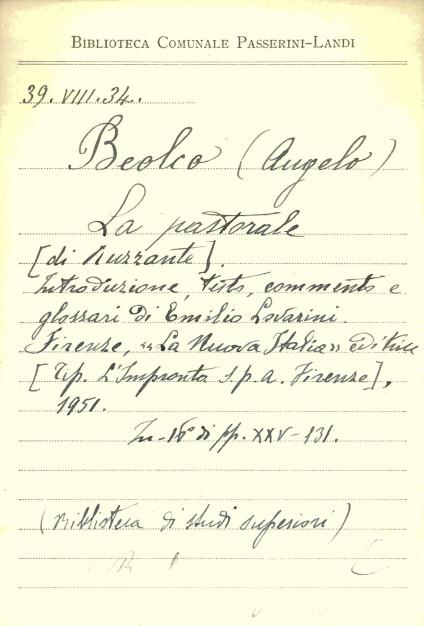 BIBLIOTECA COMUNALE PASSERINI-LANDI
39.VIII.34.
Beolco (Angelo)
La pastorale
[di Ruzzante].
Introduzione, testo, commento e
glossari di Emilio Lovarini.
Firenze, "La Nuova Italia" editrice
[Tip. L'Impronta s.p.a. Firenze],
1951.
In-16° di pp. XXV-131.
(Biblioteca di studi superiori)